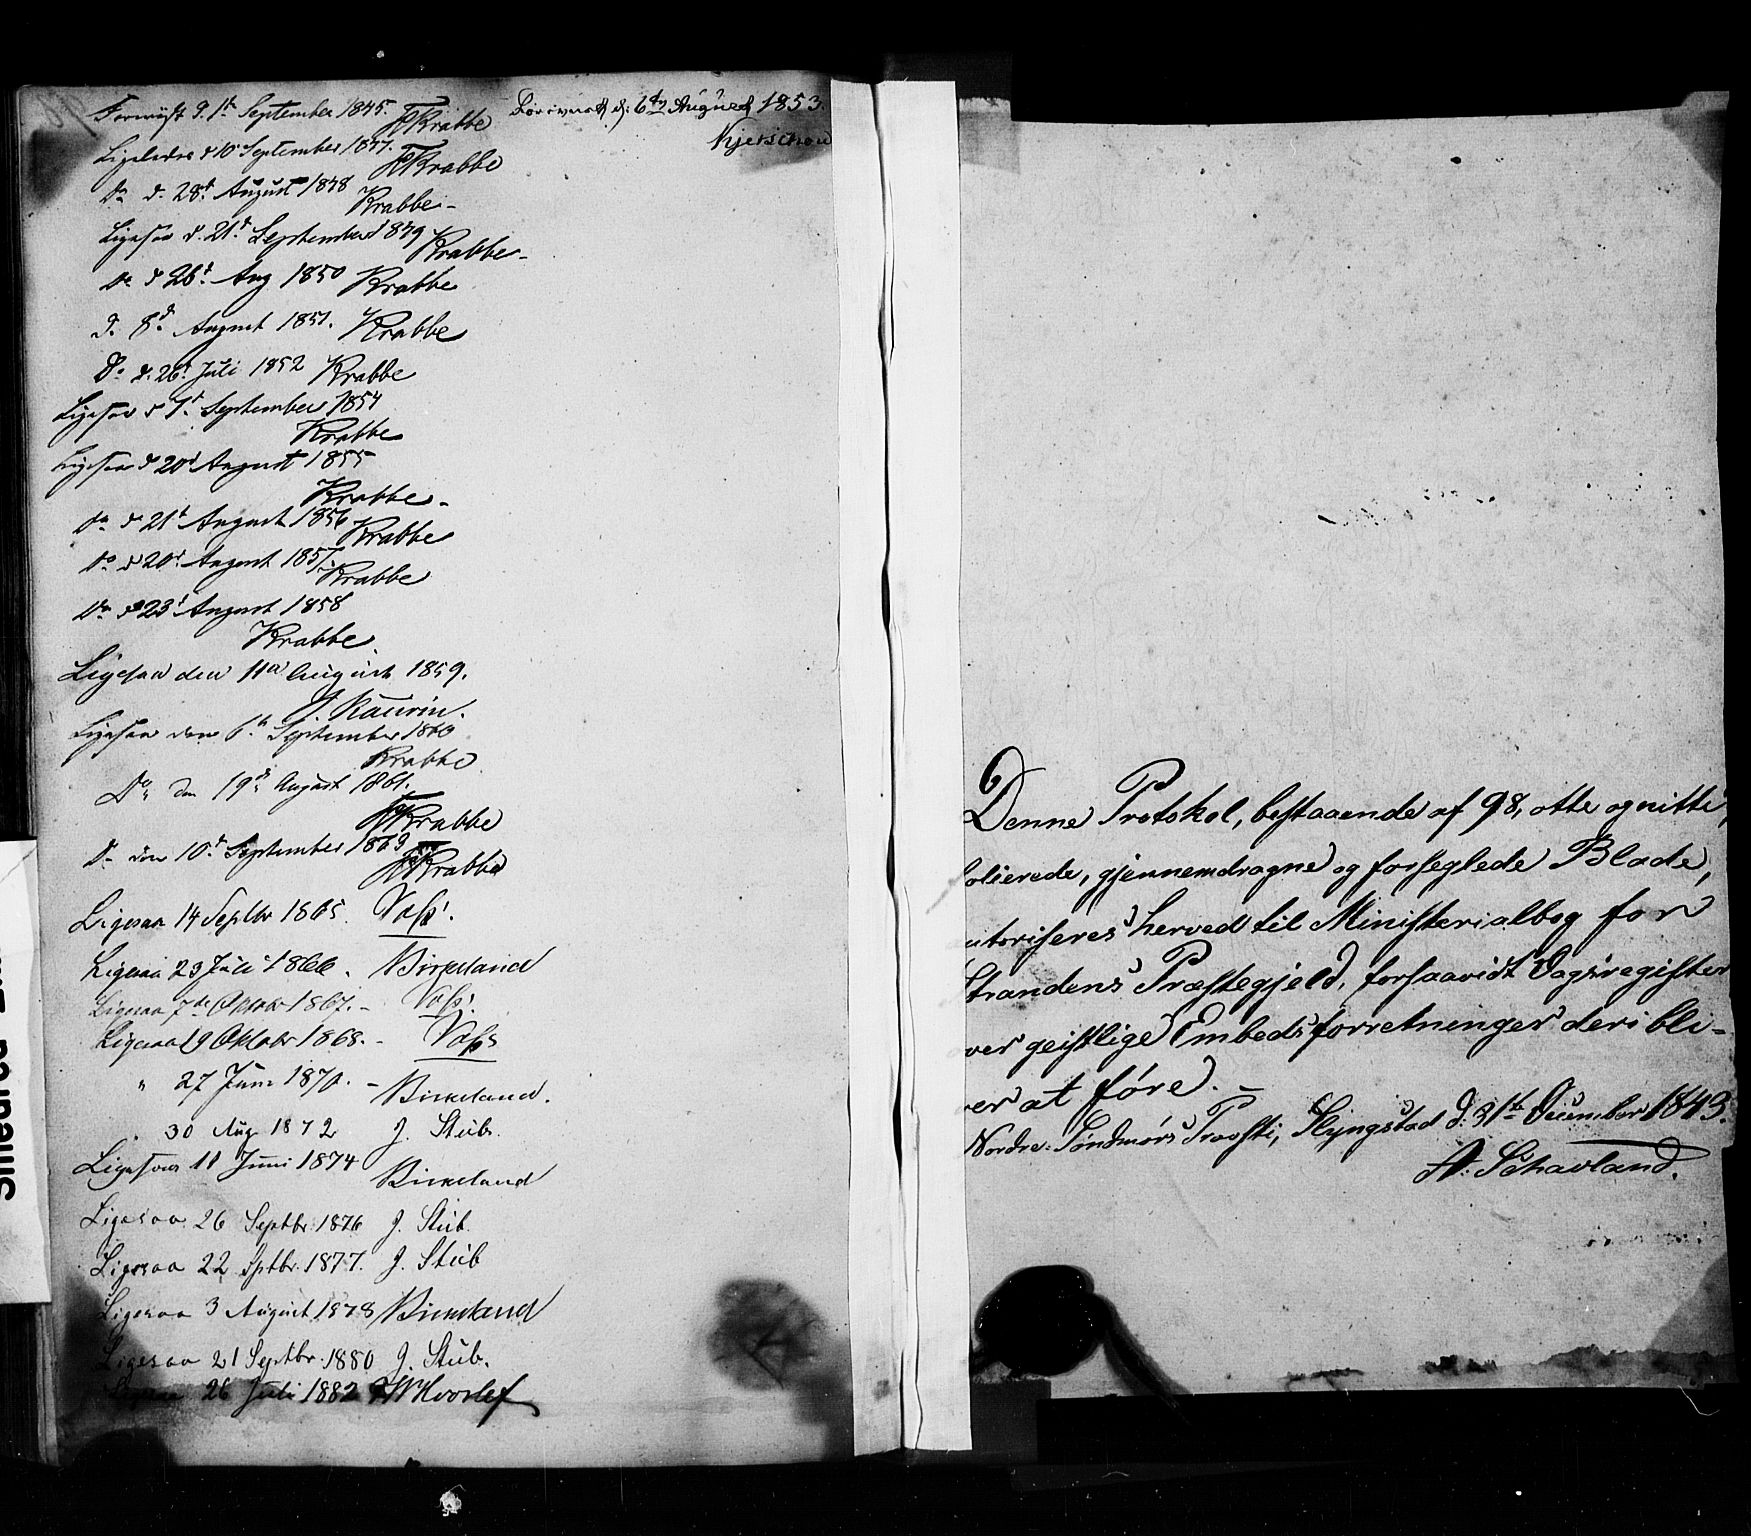 Foreviist d. 1te September 1845.
FKrabbe
Ligeledes d 10 September 1847.
FKrabbe
Do d. 28d August 1848
Krabbe
Ligesaa d. 21d September 1849
Krabbe
Do d 26d Aug 1850 Krabbe
D. 8d August 1851. Krabbe
Do d. 26d Juli 1852 Krabbe
Ligesaa d 1d September 1854
Krabbe
Ligesaa d 20d August 1855
Krabbe
Do d 21d August 1856
Krabbe
Do d 20d August 1857.
Krabbe
Do d 23d August 1858
Krabbe.
Ligesaa den 11te August 1859.
J. Kaurin.
Ligesaa den 6te September 1860
Krabbe
Do den 19de August 1861.
FKrabbe
Do den 10d September 1863
FKrabbe
Ligesaa 14 Septbr 1865. Voss.
Ligesaa 23 Juli 1866. Birkeland
Ligesaa 7de Oktober 1867. - Voss.
Ligesaa 19 Oktobr 1868. - Voss
" 27 Juni 1870. - Birkeland.
" 30 Aug 1872 J. Stub.
Ligesaa 11 Juni 1874
Birkeland
Ligesaa 26 Septbr. 1876 J. Stub.
Ligesaa 22 Sptbr. 1877. J. Stub
Ligesaa 3 August 1878 Birkeland
Ligesaa 21 Septbr. 1880 J. Stub.
Ligesaa 26 Juli 1882 FWHvoslef
Foreviist d: 6te August 1853.
Kjerschow
Denne Protokol, bestaaende af 98, otte og nitti,
folierede, gjennemdragne og forseglede Blade,
autoriseres herved til Ministerialbog for
Strandens Præstegjeld, forsaavidt Dagsregister
over geistlige Embedsforretninger deri bli-
ver at føre. -
Nordre: Søndmørs Provsti, Slyngstad d: 31te December 1843.
A: Schavland.
Smedred